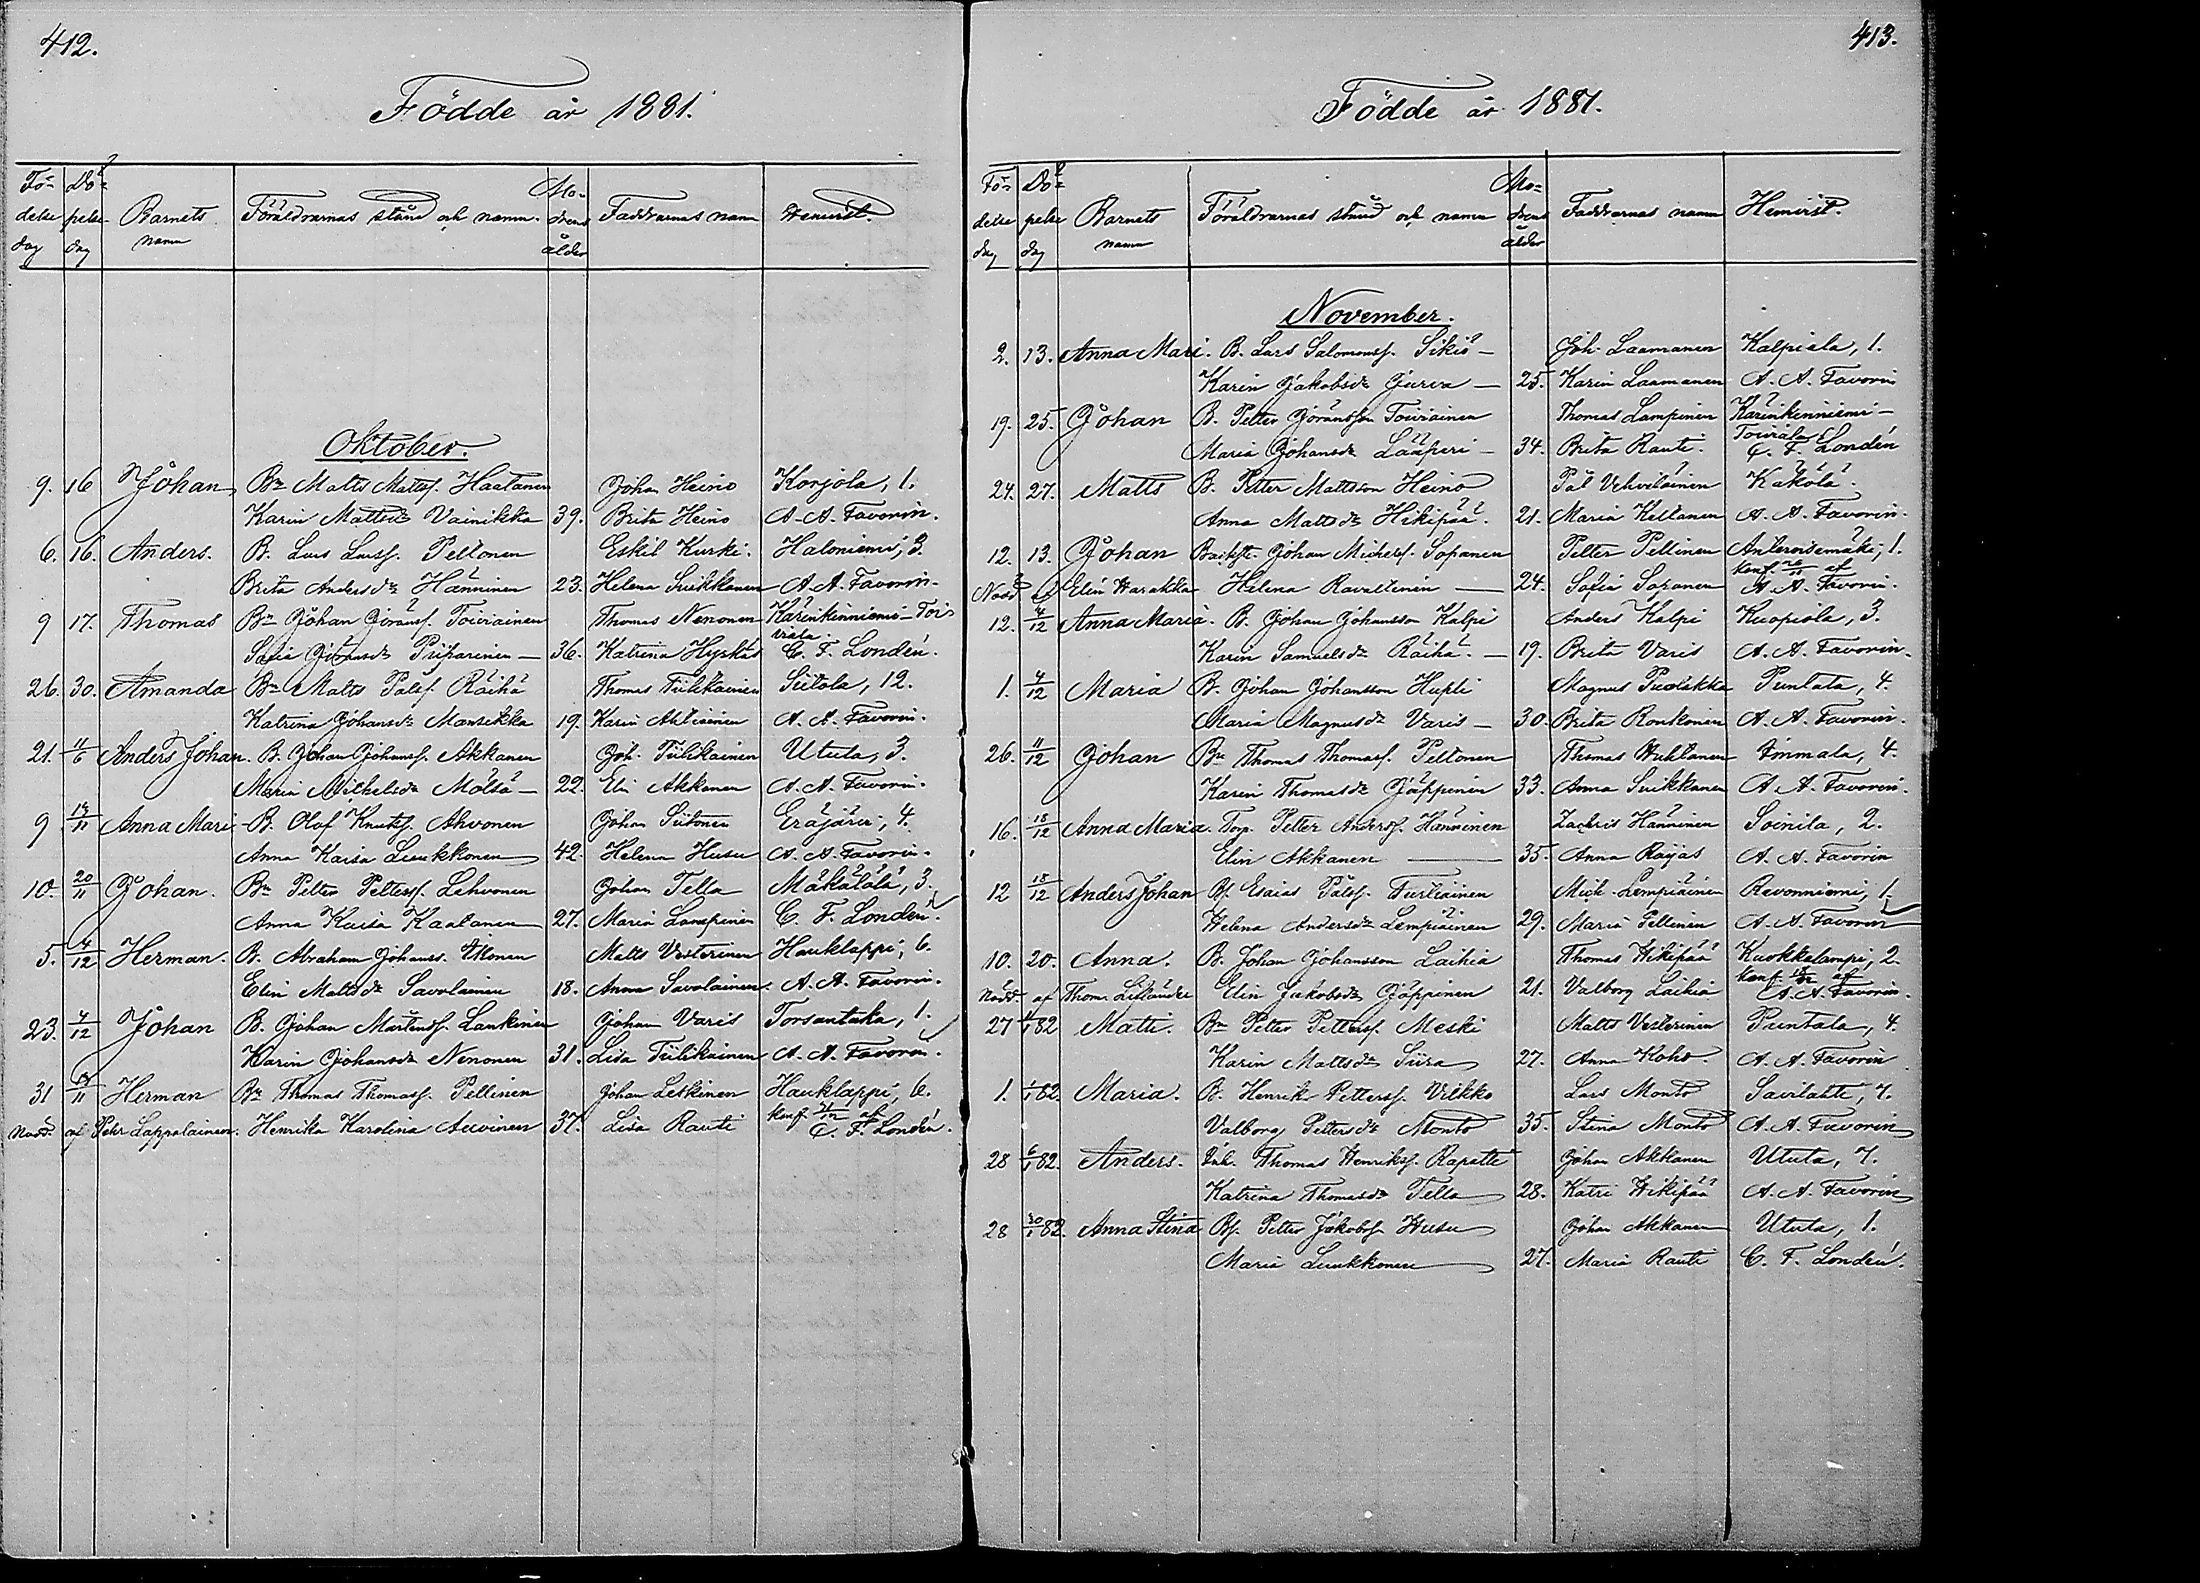 412.
Födde år 1881.
Fö- Dö- Mo-
delse pelse Barnets Föräldrarnas stånd och namn. drens Faddrarnas namn Hemvist.
dag dag namn ålder
Oktober.
9. 16 Johan Bn Matts Mattsf. Haatanen Johan Heino Korjola, 1.
Karin Mattsdr Vainikka 39. Brita Heino A. A. Favorin.
6. 16. Anders. B. Lars Larsf. Peltonen Eskil Kurki. Haloniemi, 3.
Brita Andersdr Hänninen 23. Helena Suikkanen A. A. Favorin.
9 17. Thomas Bn Johan Göransf. Toiviainen Thomas Nenonen Kärinkinniemi-Toi-
viala.
Sofia Göransdr Pripasinen — 36. Katrina Hyrkäs C. F. Londén.
26. 30. Amanda Bn Matts Pålsf. Räihä Thomas Tiilikainen Siitola, 12.
Katrina Johansdr Mansikka 19. Karin Ahtiainen A. A. Favorin.
21. 11/6 Anders Johan. B. Johan Johansf. Akkanen Joh. Tiilikainen Utula, 3.
Maria Michelsdr Mälsä — 22. Eli Akkanen A. A. Favorin.
9 13/11 Anna Mari B. Olof Knutsf. Ahvonen Johan Siitonen Eräjärvi, 4.
Anna Kaisa Luukkonen 42. Helena Husu A. A. Favorin.
10. 20/11 Johan. Bn Petter Pettersf. Lehvonen Johan Tella Mäkälälä, 3.
Anna Kaisa Kaatanen 27. Maria Lampinen C. F. Londén.
5. 4/12 Herman. B. Abraham Johanss. Ikonen Matts Vesterinen Hauklappi, 6.
Elin Mattsdr Savolainen 18. Anna Savolainen. A. A. Favorin.
23. 4/12 Johan B. Johan Mårtensf. Lankinen Johan Varis Torsantaka, 1.
Karin Johansdr Nenonen 31. Lisa Tiilikainen A. A. Favorin.
31 13/11 Herman Bn Thomas Thomasf. Pellinen Johan Leskinen Hauklappi, 6.
Nödd. af Pehr Lappalainen. Henrika Karolina Auvinen 37. Lisa Rauti konf. 4/12 af C. F. Londén.
413.
Födde år 1881.
Fö- Dö- Mo-
delse pelse Barnets Föräldrarnas stånd och namn drens Faddrarnas namn Hemvist.
dag dag namn ålder
November.
2. 13. Anna Mari. B. Lars Salomonsf. Sikiö — Joh. Laamanen Kalpiala, 1.
Karin Jakobsdr Jurva — 25. Karin Laamanen A. A. Favorin
19. 25. Johan B. Petter Göransson Toiviainen Thomas Lampinen Kärinkinniemi-
Toiviala
Maria Johansdr Lääperi — 34. Brita Rauti. C. F. Londén
24. 27. Matts B. Petter Mattsson Heino Pål Vehviläinen Käkölä.
Anna Mattsdr Hikipää. 21. Maria Keltanen A. A. Favorin.
12. 13. Johan Backst. Johan Michelsf. Sopanen Petter Pellinen Anteroisemäki, 1.
konf. 20/11 af
Nödd af Elin Harakka Helena Ravattinin — 24. Sofia Sopanen A. A. Favorin.
12. 4/12 Anna Maria. B. Johan Johansson Kalpi Anders Kalpi Kuopiola, 3.
Karin Samuelsdr Räihä. — 19. Brita Varis A. A. Favorin.
1. 4/12 Maria B. Johan Johansson Hupli Magnus Puolakka Puntala, 4.
Maria Magnusdr Varis — 30. Brita Ronkonen A. A. Favorin.
26. 11/12 Johan Bn Thomas Thomasf. Peltonen Thomas Huhtanen Immala, 4.
Karin Thomasdr Jäppinen 33. Anna Suikkanen A. A. Favorin.
16. 18/12 Anna Maria. Torp. Petter Andersf. Hänninen Zachris Hänninen Soinila, 2.
Elin Akkanen — 35. Anna Rajjas A. A. Favorin
12 18/12 Anders Johan Bf. Esaias Pålsf. Turtiainen Mich. Lempiäinen Revonniemi, 1.
Helena Andersdr Lempiäinen 29. Maria Pellinen A. A. Favorin
10. 20. Anna. B. Johan Johansson Laihia Thomas Hikipää Kuokkalampi, 2.
konf. 18/12 af
Nödd. af Thom. Liflander Elin Jakobsdr Jäppinen 21. Valborg Laihia A. A. Favorin.
27 1/1 82 Matti. Bn Petter Pettersf. Meski Matts Vesterinen Puntala, 4.
Karin Mattsdr Siira 27. Anna Koho A. A. Favorin
1. 1/1 82 Maria. B. Henrik Pettersf. Vilkko Lars Monto Savilahti, 7.
Valborg Pettersdr Monto 35. Stina Monto A. A. Favorin
28 6/1 82. Anders. Inh. Thomas Henriksf. Rapatti Johan Akkanen Utula, 7.
Katrina Thomasdr Tella 28. Katri Hikipää A. A. Favorin
28 30/1 82. Anna Stina Bf. Petter Jakobsf. Husu Johan Akkanen Utula, 1.
Maria Luukkonen 27. Maria Rauti C. F. Londén.